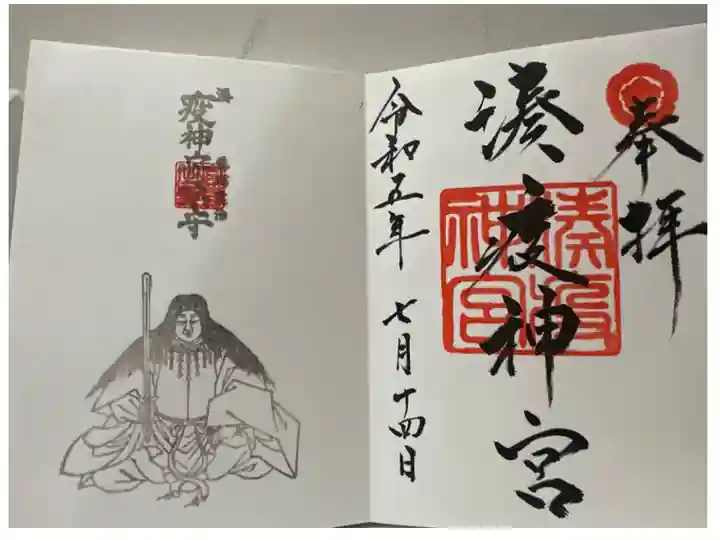 奉拝
湊疫神宮
湊疫神宮
令和五年 七月十四日
湊
疫神宮
守